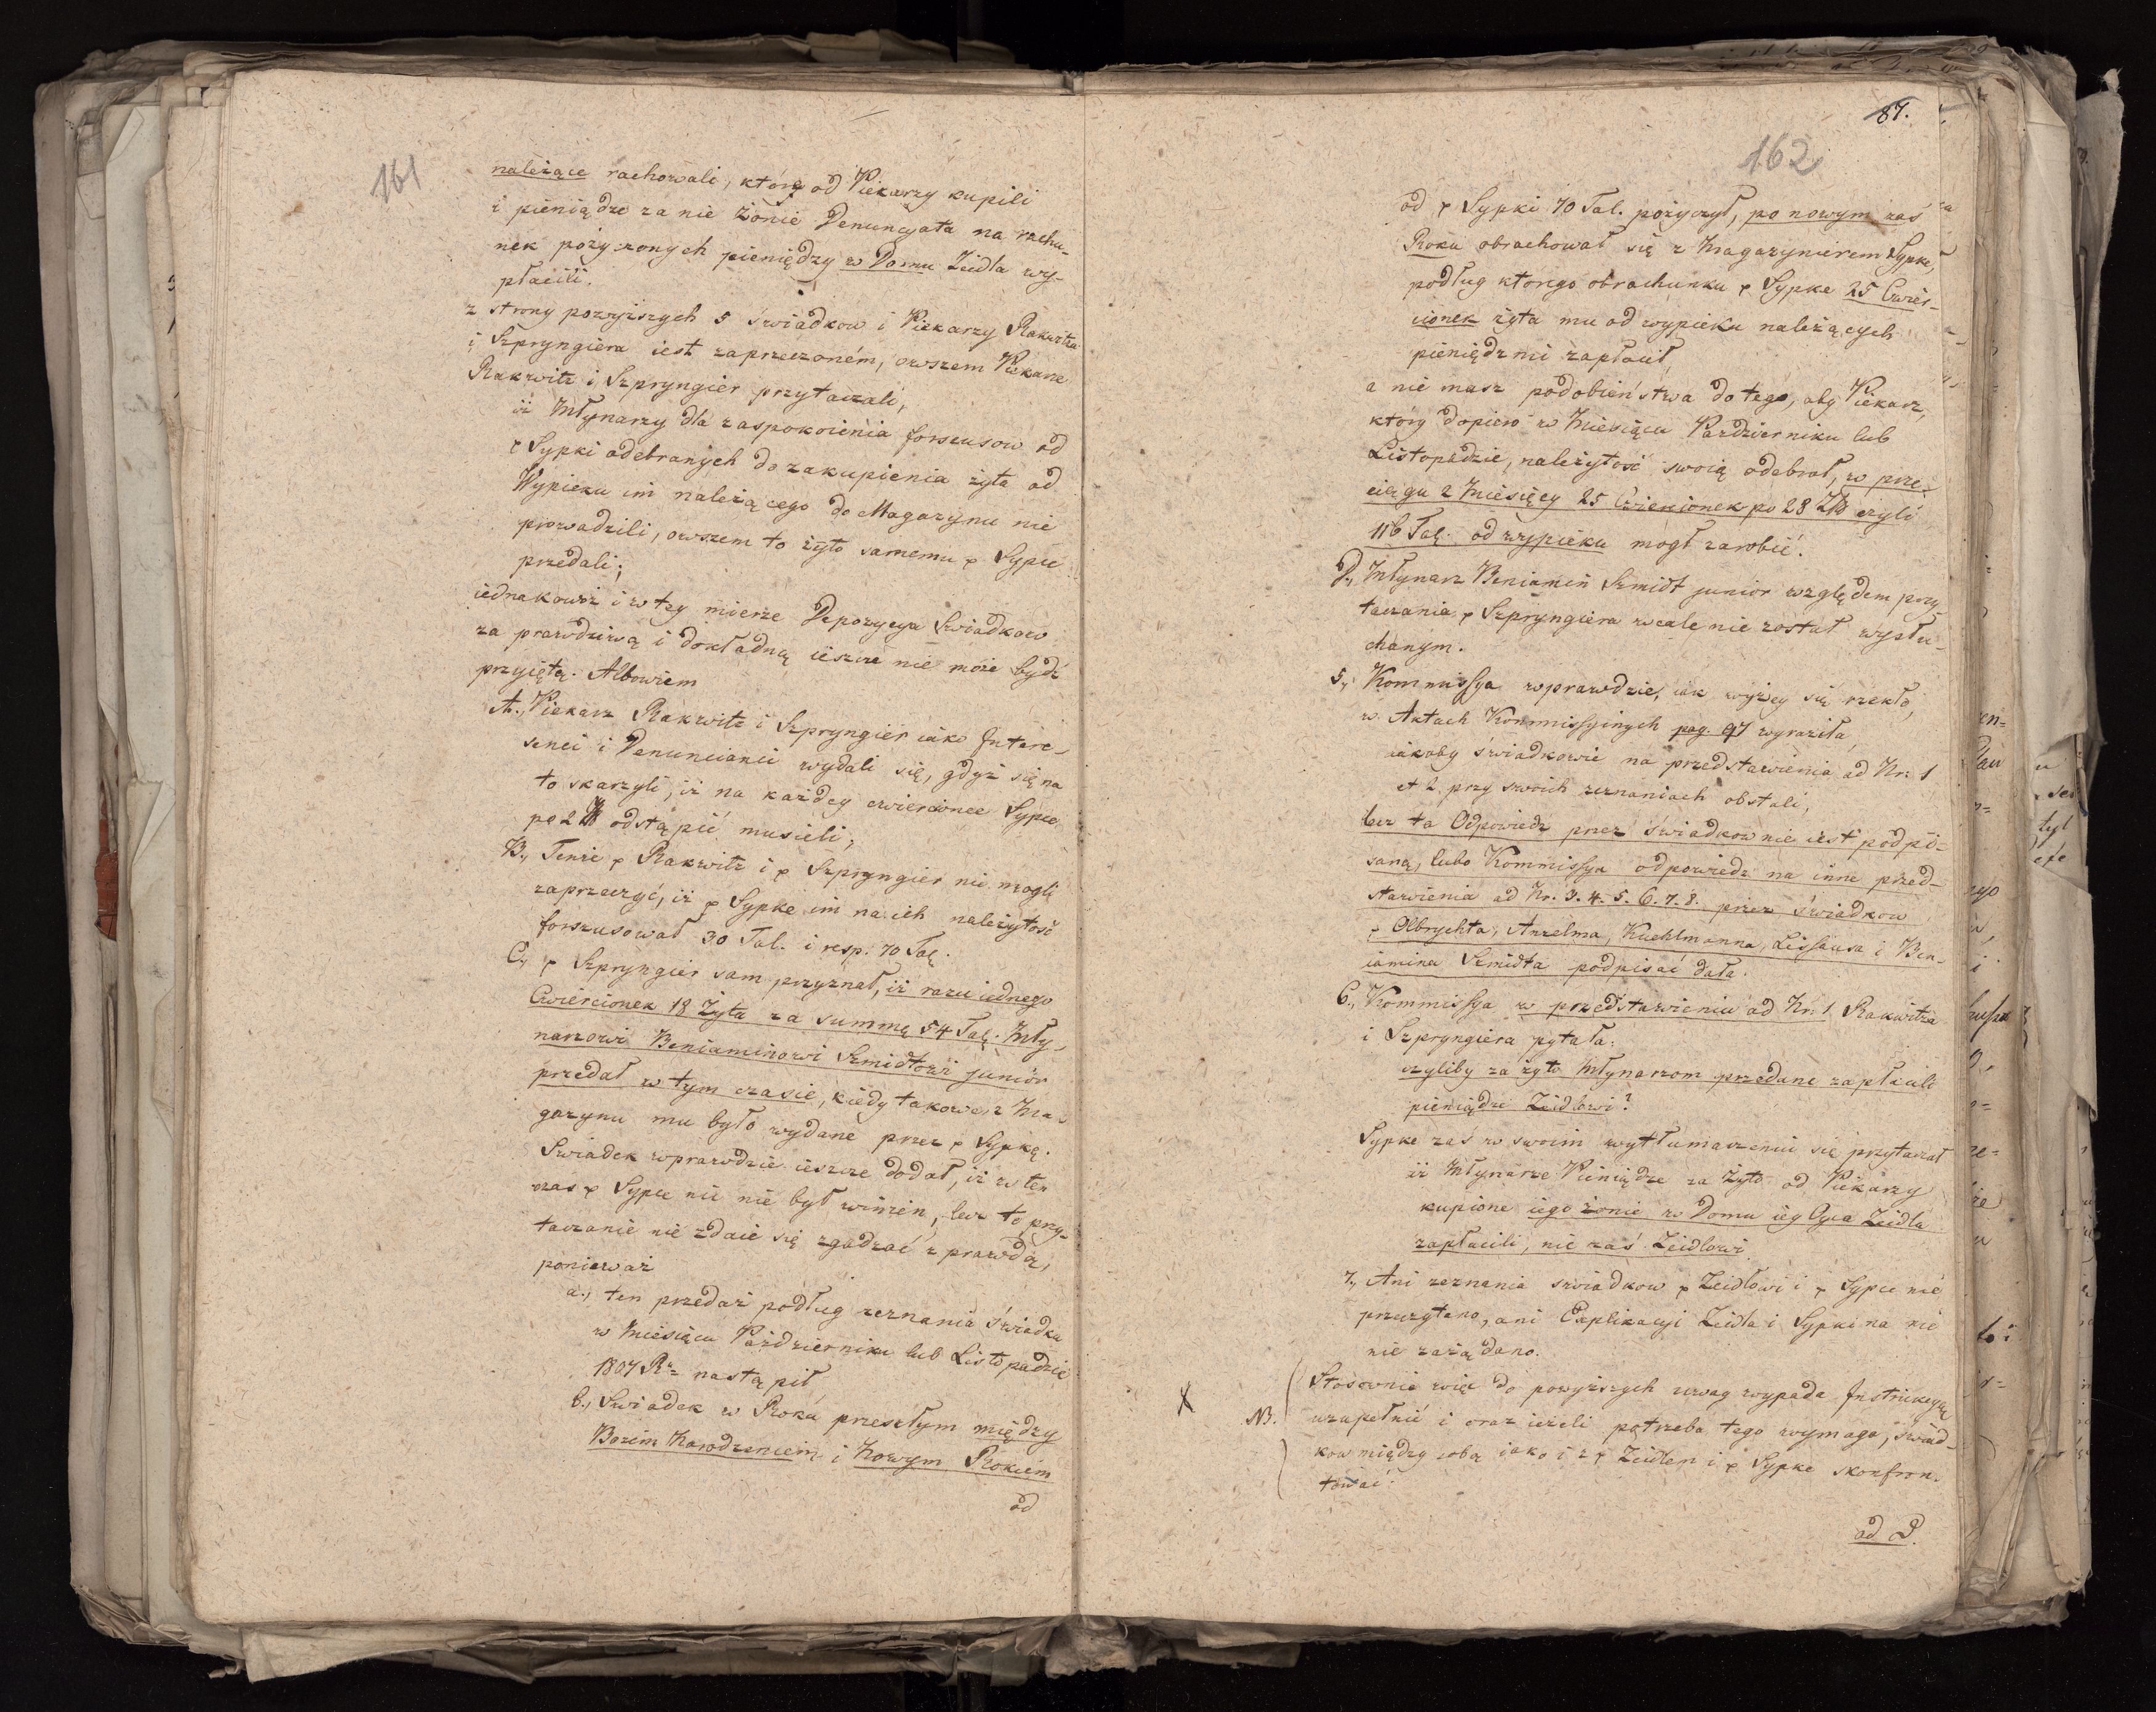 161
należące rachowali, którę od Piekarzy kupili
i pieniądze za nie żonie Denuncyata na rachu-
nek pożyczonych pieniędzy w Domu Zeidla wy-
płacili.
z strony powyższych 5 świadkow i Piekarzy Rakwitza
i Szpryngiera iest zaprzeczoném, owszem Piekarze
Rakwitz i Szpryngier przytaczali,
iż Młynarzy dla zaspokoienia forszusow od
p Sypki odebranych do zakupienia żyta od
Wypieku im należącego do Magazynu nie
prowadzili, owszem to żyto samemu p Sypce
przedali;
iednakowoż i w tey mierze Depozycya Swiadkow
za prawdziwą i dokładną ieszcze nie może bydź
przyiętą. Albowiem
A., Piekarz Rakwitz i Szpryngier iako Intere-
senci i Denuncianci wydali się, gdyż się na
to skarzyli, iż na każdey cwiercionce Sypce
po 2 odstąpić musieli;
B., Tenże p Rakwitz i p Szpryngier nie mogli
zaprzeczyć, iż p Sypke im na ich należytość
forszusował 30 Tal. i resp. 70 Tal.
C., p Szpryngier sam przyznał, iż razu iednego
Cwiercionek 18 Żyta za summę 54 Tal. Mły-
narzowi Beniaminowi Szmidtowi junior
przedał w tym czasie, kiedy takowe z Ma-
gazynu mu było wydane przez p Sypkę.
Swiadek wprawdzie ieszcze dodał, iż w ten
czas p Sypce nic nie był winien, lecz to przy-
taczanie nie zdaie się zgadzać z prawdą,
ponieważ
a., ten przedaż podług zeznania świadka
w Miesiącu Październiku lub Listopadzie
1807 Rz nastąpił
b., Swiadek w Roku przeszłym między
Bozém Narodzeniem i Nowym Rokiem
od
87.
162
od p Sypki 70 Tal. pożyczył, po nowym zaś
Roku obrachował się z Magazynierem Sypke,
podług ktorego obrachunku p Sypke 25 Cwier-
cionek żyta mu od wypieku należących
pieniędzmi zapłacił,
a nie masz podobieństwa do tego, aby Piekarz,
który dopiero w Miesiącu Pazdzierniku lub
Listopadzie, należytość swoią odebrał, w prze-
ciągu 2 Miesięcy 25 Cwiercionek po 28 czyli
116 Tal. od wypieku mógł zarobić.
D., Młynarz Beniamin Szmidt junior względem przy-
taczania p Szpryngiera wcale nie został wysłu-
chanym.
5., Kommissya wprawdzie, iak wyżey się rzekło,
w Aktach Kommissyinych pag. 97 wyraziła,
iakoby świadkowie na przedstawienia ad Nr. 1
et 2. przy swoich zeznaniach obstali,
lecz ta Odpowiedz przez świadkow nie iest podpi-
saną, lubo Kommissya odpowiedz na inne przed-
stawienia ad Nr. 3. 4. 5. 6. 7. 8. przez świadkow
p Olbrychta, Anzelma, Kuehlmanna, Lissausa i Ben-
iamina Szmidta podpisać dała.
6., Kommissya w przedstawieniu ad Nr. 1 Rakwitza
i Szpryngiera pytała:
czyliby za żyto Młynarzom przedane zapłacili
pieniądze Zeidlowi?
Sypke zaś w swoim wytłumaczeniu się przytaczał
iż Młynarze Pieniądze za Żyto od Piekarzy
kupione iego żonie w Domu iey Oyca Zeidla
zapłacili, nie zaś Zeidlowi.
7., Ani zeznania swiadkow p Zeidlowi i p Sypce nie
przeczytano, ani Explikacyi Zeidla i Sypki na nie
nie zażądano.
X NB. Stosownie więc do powyższych uwag wypada Instrukcyą
uzupełnić i oraz ieżeli potrzeba tego wymaga, świad-
kow między sobą iako i z p Zeidlem i p Sypke skonfron-
tować.
ad D.